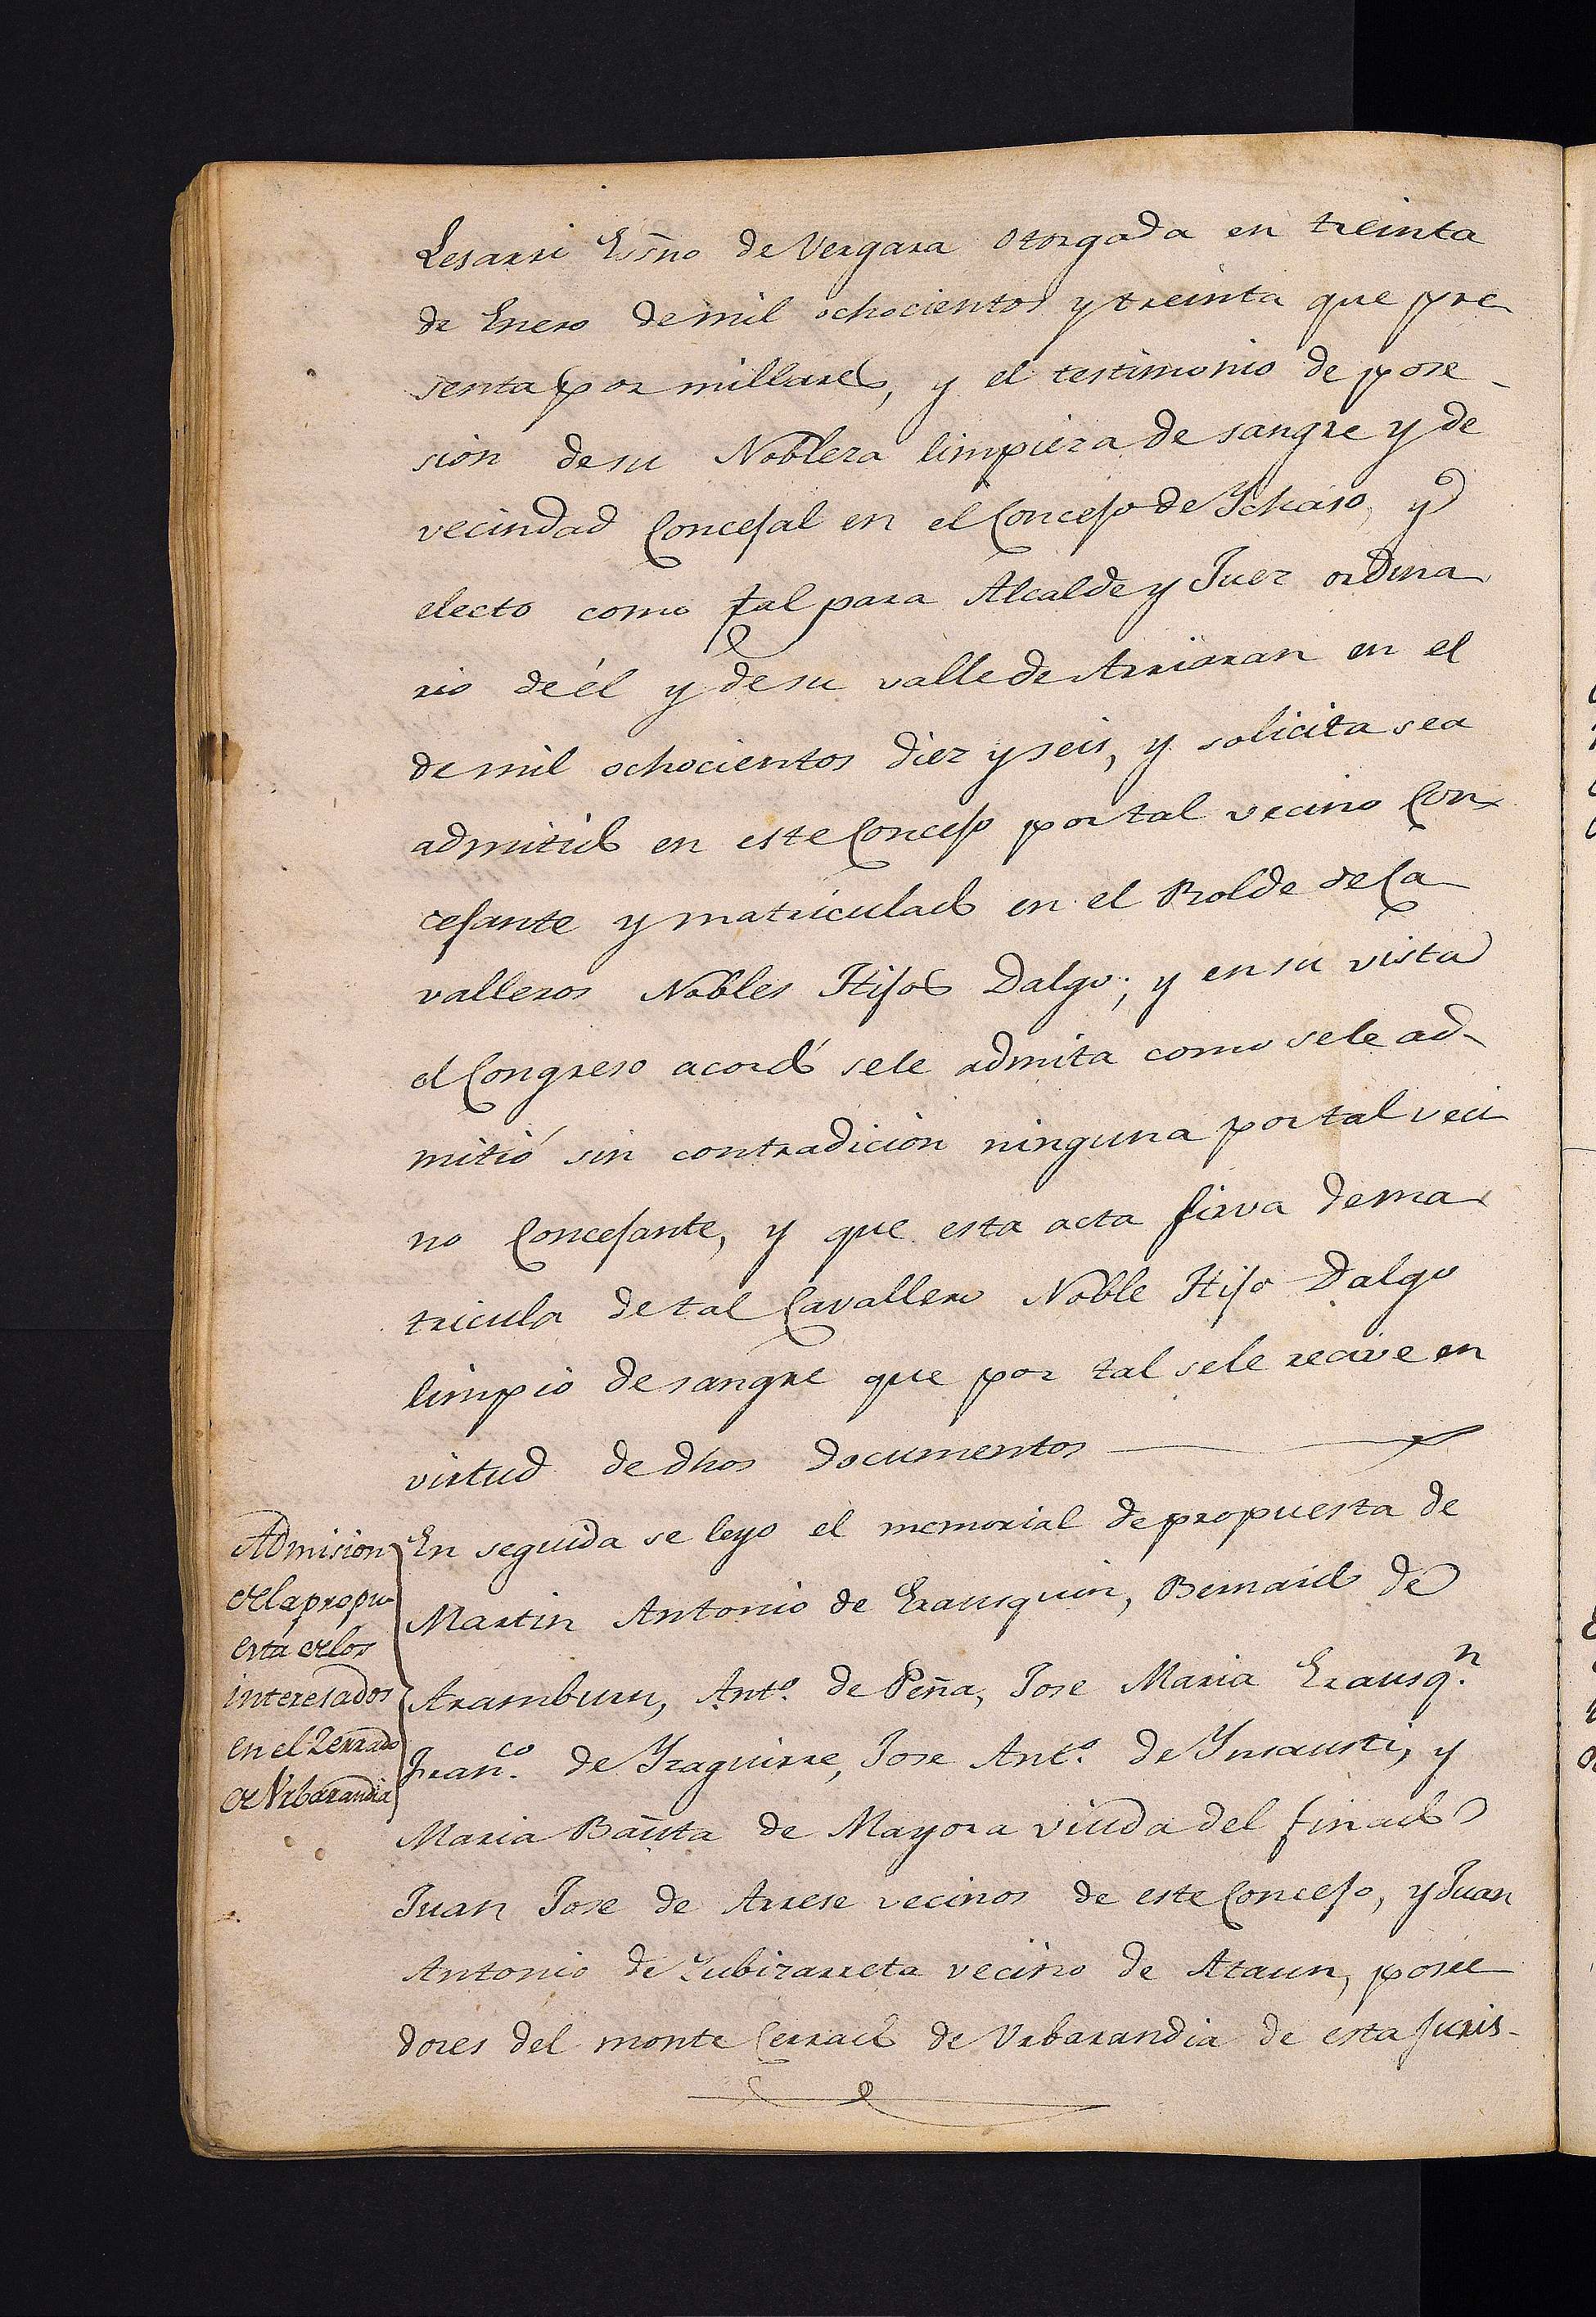 Lesarri Esñno de Vergara otorgada en treinta
de Enero de mil ochocientos y treinta que pre
senta por millares, y el testimonio de pose-
sion de su Nobleza limpieza de sangre y de
vecindad Concejal en el Concejo de Ychaso, y
electo como tal para Alcalde y Juez ordina
rio de él y de su valle de Arriaran en el
de mil ochocientos diez y seis, y solicita sea
admitido en este Concejo por tal vecino Con
cejante y matriculado en el Rolde de Ca
valleros Nobles Hijos Dalgo; y en su vista
el Congreso acordó se le admita como se le ad-
mitió sin contradicion ninguna por tal veci
no Concejante, y que esta acta sirva de ma
tricula de tal Cavallero Noble Hijo Dalgo
limpio de sangre que por tal se le recive en
virtud de dhos documentos
Admision
de la propu-
esta de los
interesados
en el Zerrado
de Urbarandia
En seguida se leyo el memorial de propuesta de
Martin Antonio de Erausquin, Bernardo de
Aramburu, Antº. de Peña, Jose Maria Erausqn.
Franco. de Yraguirre, Jose Antº. de Ynsausti, y
Maria Baũta de Mayora viuda del finado
Juan Jose de Arrese vecinos de este Concejo, y Juan
Antonio de Zubizarreta vecino de Ataun, posee
dores del monte Cerrado de Urbarandia de esta juris-